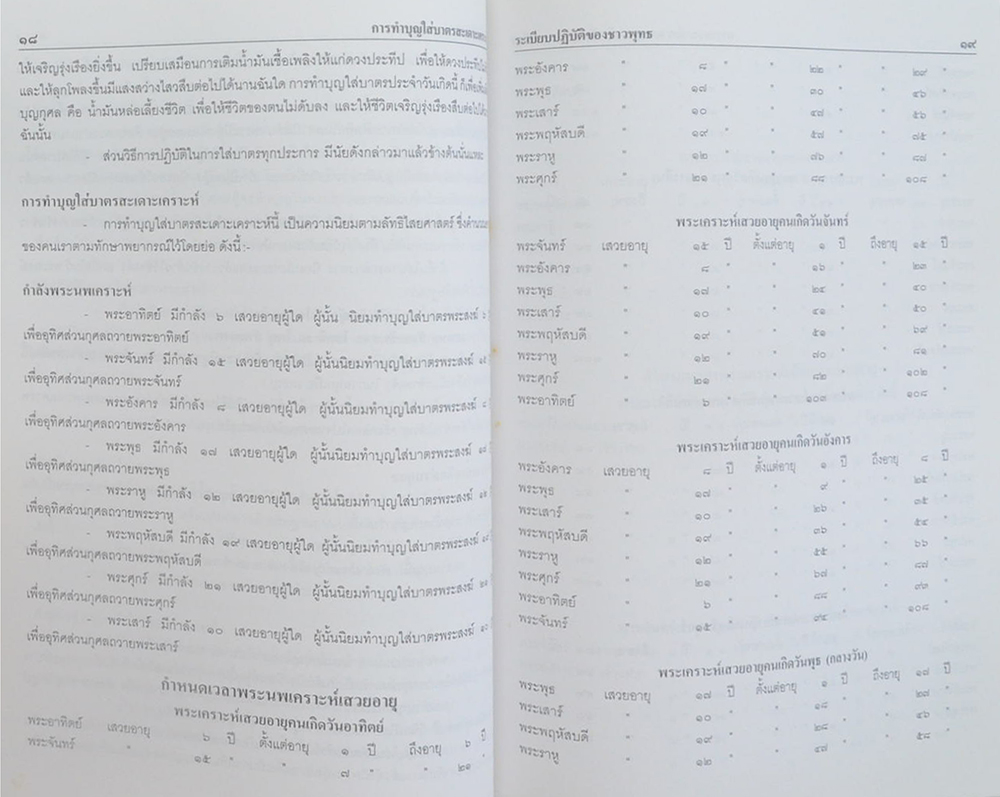 ๑๘ การทำบุญใส่บาตรสะเดาะเคราะห์
ให้เจริญรุ่งเรืองยิ่งขึ้น เปรียบเสมือนการเติมน้ำมันเชื้อเพลิงให้แก่ดวงประทีป เพื่อให้ดวงประทีป
และให้ลุกโพลงขึ้นมีแสงสว่างไสวสืบต่อไปได้นานฉันใด การทำบุญใส่บาตรประจำวันเกิดนี้ ก็เพื่อ
บุญกุศล คือ น้ำมันหล่อเลี้ยงชีวิต เพื่อให้ชีวิตของตนไม่ดับลง และให้ชีวิตเจริญรุ่งเรืองสืบต่อไป
ฉันนั้น
- ส่วนวิธีการปฏิบัติในการใส่บาตรทุกประการ มีนัยดังกล่าวมาแล้วข้างต้นนั้นแหละ
การทำบุญใส่บาตรสะเดาะเคราะห์
- การทำบุญใส่บาตรสะเดาะเคราะห์นี้ เป็นความนิยมตามลัทธิไสยศาสตร์
ของคนเราตามทักษาพยากรณ์ไว้โดยย่อ ดังนี้ :-
กำลังพระนพเคราะห์
- พระอาทิตย์ มีกำลัง ๖ เสวยอายุผู้ใด ผู้นั้น นิยมทำบุญใส่บาตรพระสงฆ์ ๖
เพื่ออุทิศส่วนกุศลถวายพระอาทิตย์
- พระจันทร์ มีกำลัง ๑๕ เสวยอายุผู้ใด ผู้นั้นนิยมทำบุญใส่บาตรพระสงฆ์ ๑๕
เพื่ออุทิศส่วนกุศลถวายพระจันทร์
- พระอังคาร มีกำลัง ๘ เสวยอายุผู้ใด ผู้นั้นนิยมทำบุญใส่บาตรพระสงฆ์ ๘
เพื่ออุทิศส่วนกุศลถวายพระอังคาร
- พระพุธ มีกำลัง ๑๗ เสวยอายุผู้ใด ผู้นั้นนิยมทำบุญใส่บาตรพระสงฆ์ ๑๗
เพื่ออุทิศส่วนกุศลถวายพระพุธ
- พระราหู มีกำลัง ๑๒ เสวยอายุผู้ใด ผู้นั้นนิยมทำบุญใส่บาตรพระสงฆ์ ๑๒
เพื่ออุทิศส่วนกุศลถวายพระราหู
- พระพฤหัสบดี มีกำลัง ๑๙ เสวยอายุผู้ใด ผู้นั้นนิยมทำบุญใส่บาตรพระสงฆ์ ๑๙
เพื่ออุทิศส่วนกุศลถวายพระพฤหัสบดี
- พระศุกร์ มีกำลัง ๒๑ เสวยอายุผู้ใด ผู้นั้นนิยมทำบุญใส่บาตรพระสงฆ์ ๒๑
เพื่ออุทิศส่วนกุศลถวายพระศุกร์
- พระเสาร์ มีกำลัง ๑๐ เสวยอายุผู้ใด ผู้นั้นนิยมทำบุญใส่บาตรพระสงฆ์ ๑๐
เพื่ออุทิศส่วนกุศลถวายพระเสาร์
กำหนดเวลาพระนพเคราะห์เสวยอายุ
พระเคราะห์เสวยอายุคนเกิดวันอาทิตย์
พระอาทิตย์ เสวยอายุ ๖ ปี ตั้งแต่อายุ ๑ ปี ถึงอายุ ๖ ปี
พระจันทร์ " ๑๕ " " ๗ " " ๒๑ "
ระเบียบปฏิบัติของชาวพุทธ ๑๙
พระอังคาร " ๘ " " ๒๒ " " ๒๙ "
พระพุธ " ๑๗ " " ๓๐ " " ๔๖ "
พระเสาร์ " ๑๐ " " ๔๗ " " ๕๖ "
พระพฤหัสบดี " ๑๙ " " ๕๗ " " ๗๕ "
พระราหู " ๑๒ " " ๗๖ " " ๘๗ "
พระศุกร์ " ๒๑ " " ๘๘ " " ๑๐๘ "
พระเคราะห์เสวยอายุคนเกิดวันจันทร์
พระจันทร์ เสวยอายุ ๑๕ ปี ตั้งแต่อายุ ๑ ปี ถึงอายุ ๑๕ ปี
พระอังคาร " ๘ " " ๑๖ " " ๒๓ "
พระพุธ " ๑๗ " " ๒๔ " " ๔๐ "
พระเสาร์ " ๑๐ " " ๔๑ " " ๕๐ "
พระพฤหัสบดี " ๑๙ " " ๕๑ " " ๖๙ "
พระราหู " ๑๒ " " ๗๐ " " ๘๑ "
พระศุกร์ " ๒๑ " " ๘๒ " " ๑๐๒ "
พระอาทิตย์ " ๖ " " ๑๐๓ " " ๑๐๘ "
พระเคราะห์เสวยอายุคนเกิดวันอังคาร
พระอังคาร เสวยอายุ ๘ ปี ตั้งแต่อายุ ๑ ปี ถึงอายุ ๘ ปี
พระพุธ " ๑๗ " " ๙ " " ๒๕ "
พระเสาร์ " ๑๐ " " ๒๖ " " ๓๕ "
พระพฤหัสบดี " ๑๙ " " ๓๖ " " ๕๔ "
พระราหู " ๑๒ " " ๕๕ " " ๖๖ "
พระศุกร์ " ๒๑ " " ๖๗ " " ๘๗ "
พระอาทิตย์ " ๖ " " ๘๘ " " ๙๓ "
พระจันทร์ " ๑๕ " " ๙๔ " " ๑๐๘ "
พระเคราะห์เสวยอายุคนเกิดวันพุธ (กลางวัน)
พระพุธ เสวยอายุ ๑๗ ปี ตั้งแต่อายุ ๑ ปี ถึงอายุ ๑๗ ปี
พระเสาร์ " ๑๐ " " ๑๘ " " ๒๗ "
พระพฤหัสบดี " ๑๙ " " ๒๘ " " ๔๖ "
พระราหู " ๑๒ " " ๔๗ " " ๕๘ "